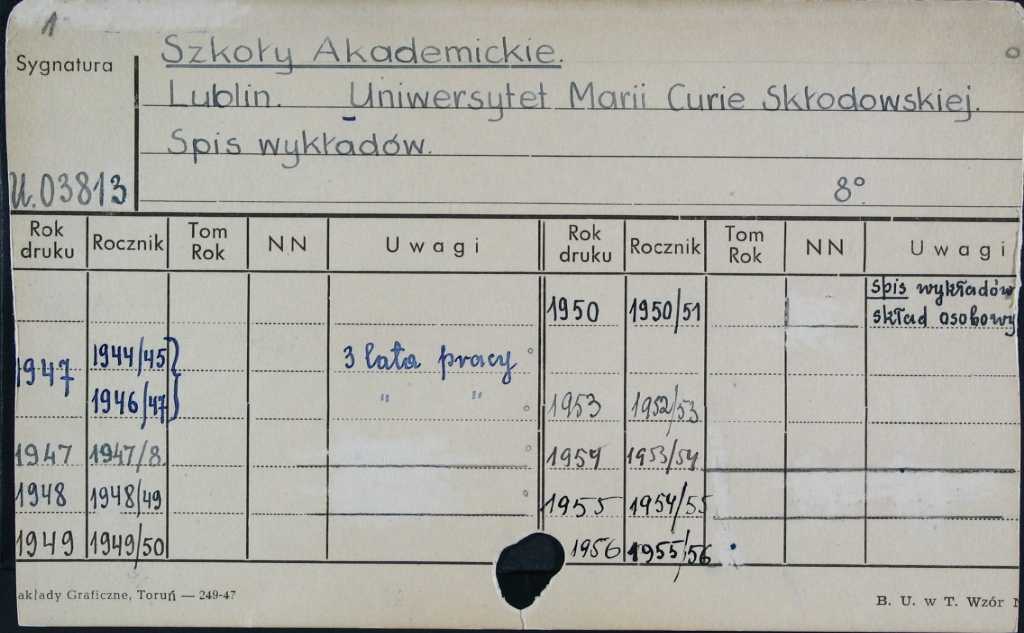 1
Sygnatura
Szkoły Akademickie.
Lublin. Uniwersytet Marii Curie Skłodowskiej.
Spis wykładów.
U.03813
8°
Rok druku Rocznik Tom Rok NN Uwagi Rok druku Rocznik Tom Rok NN Uwagi
1950 1950/51 spis wykładów
skład osobowy
1947 1944/45 3 lata pracy
1946/47 " "
1953 1952/53
1947 1947/8 1954 1953/54
1948 1948/49 1955 1954/55
1949 1949/50 1956 1955/56
akłady Graficzne, Toruń — 249-47
B. U. w T. Wzór